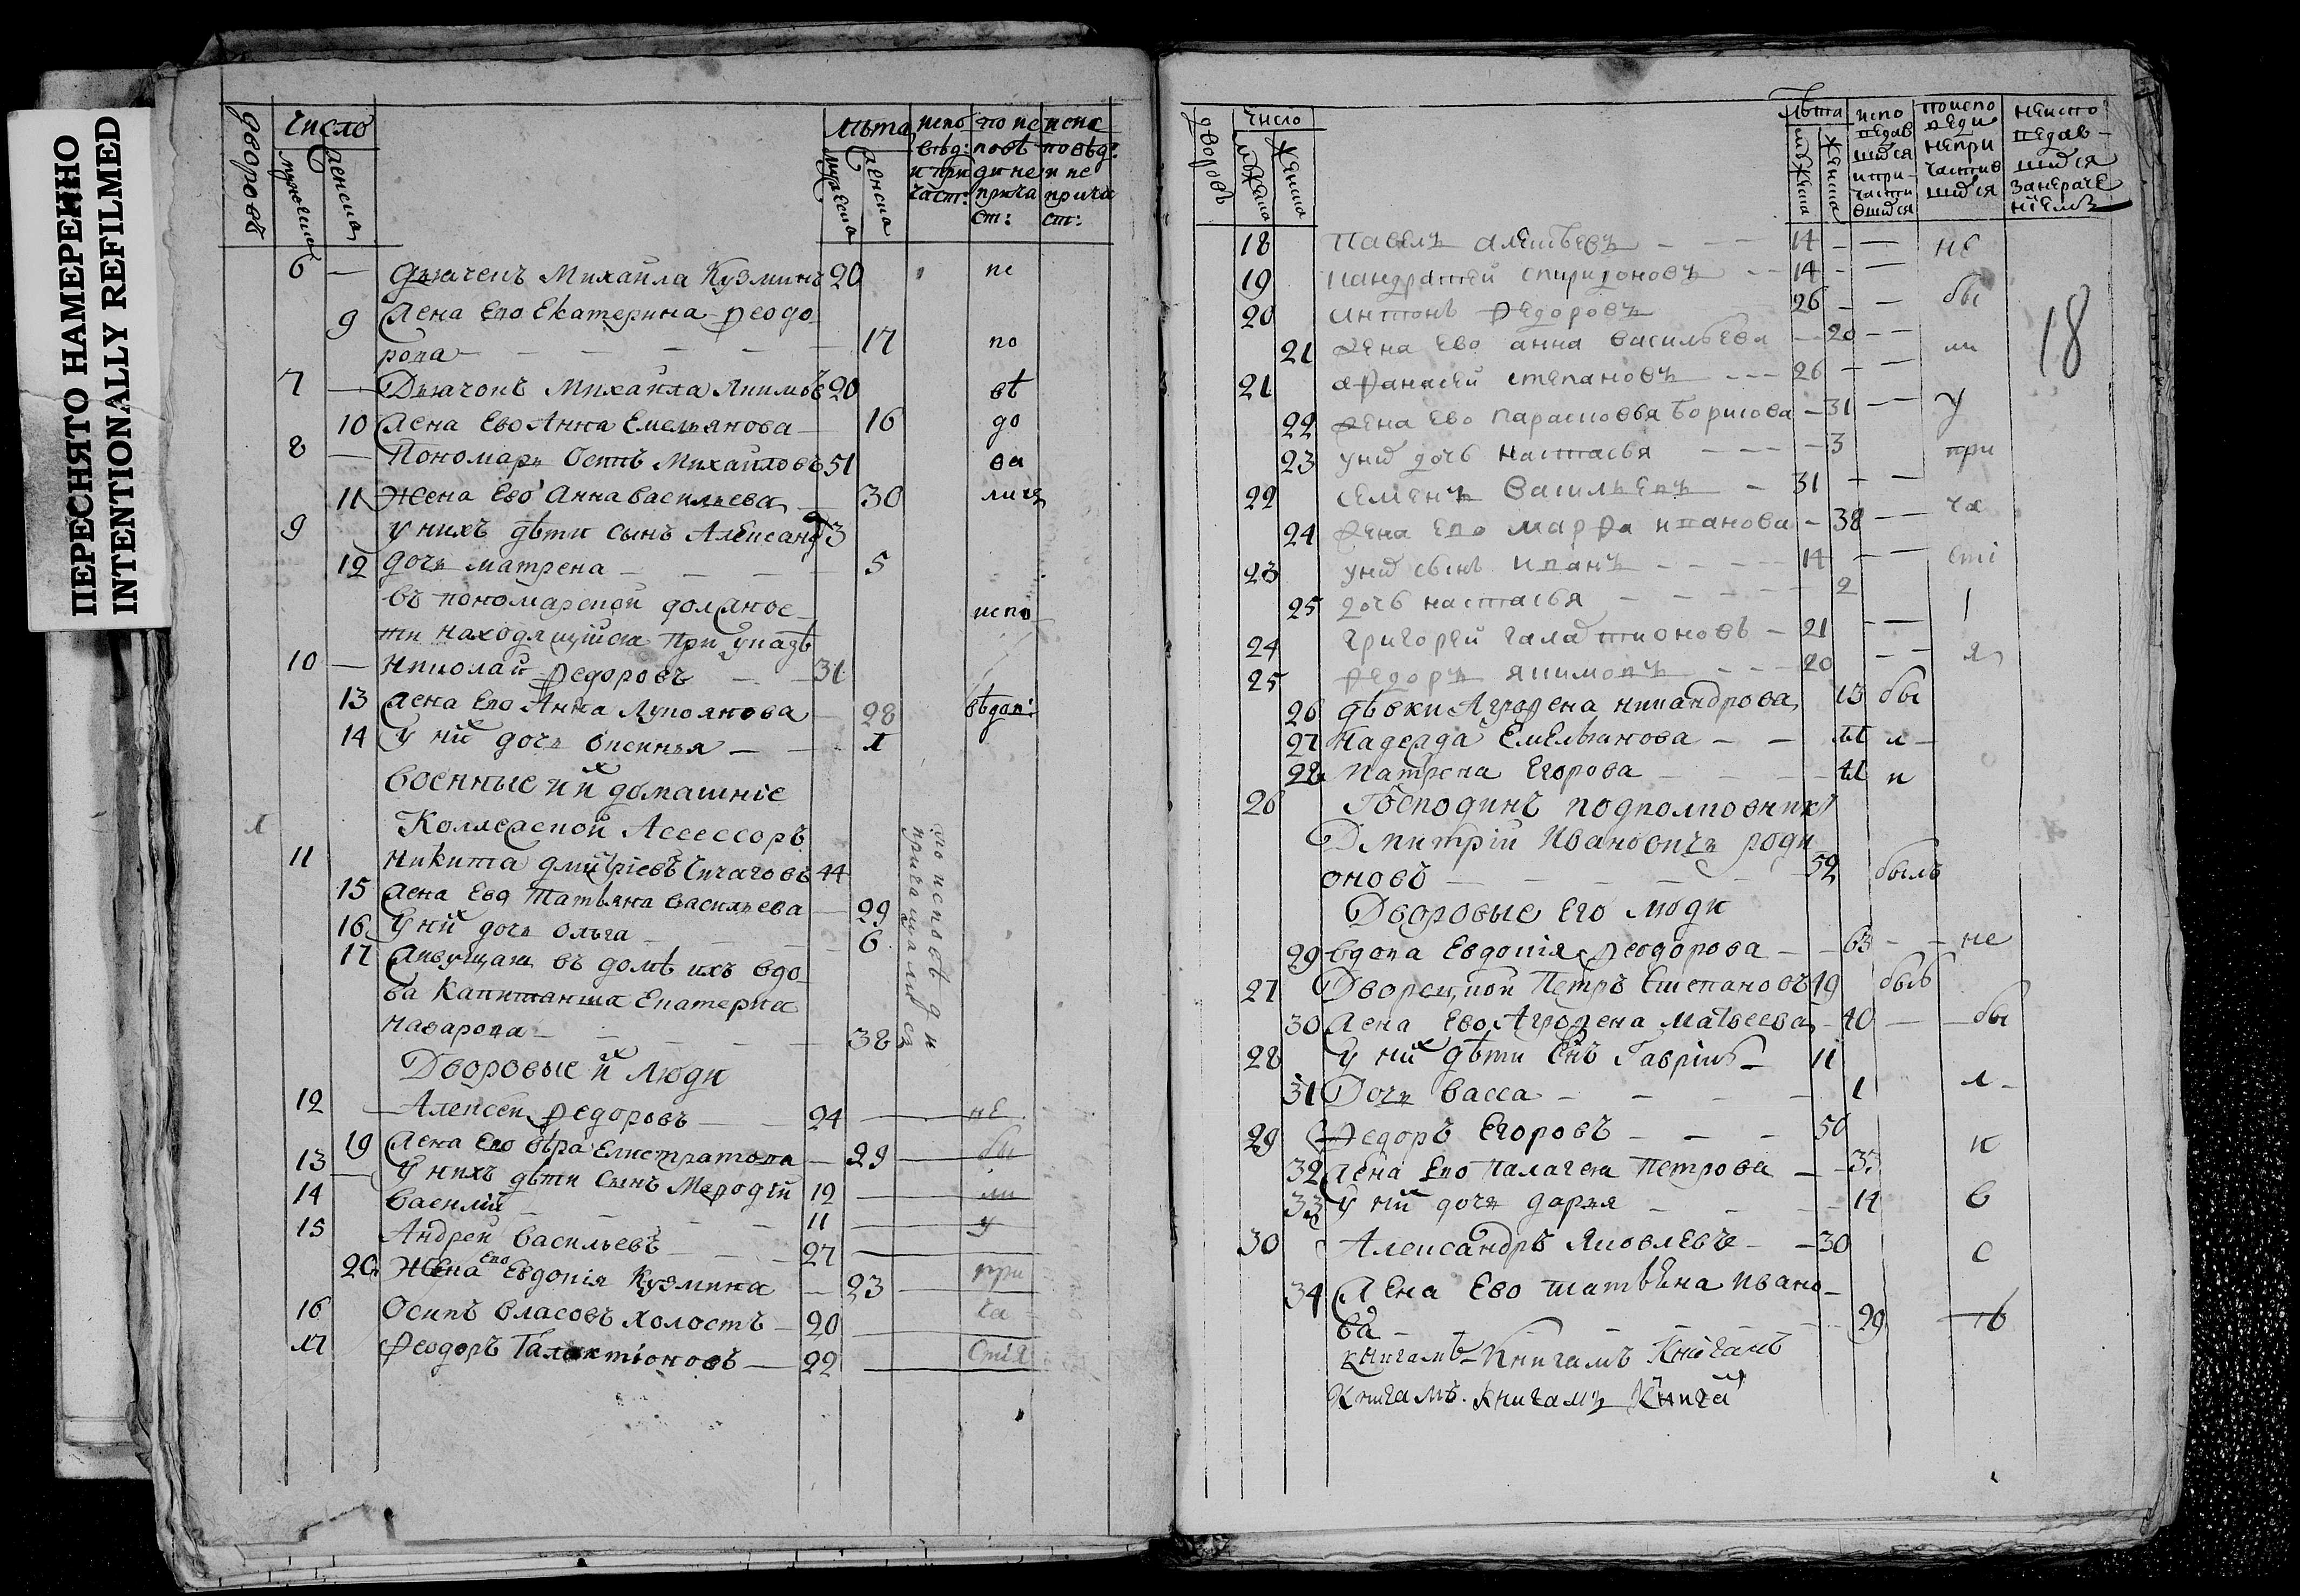 ПЕРЕСНЯТО НАМЕРЕННО
INTENTIONALLY REFILMED
дворовъ
Число
мужеска
женска
лѣта
мужеска
женска
испо
вѣд:
и при
част:
по ис
повѣ
ди не
прича
ст:
не ис
повѣд:
и не
прича
ст:
6 — Дьячекъ Михайла Кузминъ 20 не
9 Жена Ево Екатерина Феодо
рова — — — — — 17 по
7 — Дьячокъ Михайла Якимовъ 20 вѣ
10 Жена Ево Анна Емельянова — 16 до
8 — Пономарь Осипъ Михайловъ 51 ва
11 Жена Ево Анна Васильева — 30 лись
9 у нихъ дѣти сынъ Александръ 3
12 дочь матрена — — — — 5
въ пономарской должнос_ испо
ти находящийся при указѣ
10 — Николай Федоровъ — — 31
13 жена Ево Анна Лукоянова — 28 вѣдал:
14 У нихъ дочь Ксенья — — 1
Военные и ихъ домашніе
1 Коллежской Ассессоръ
11 Никита Дмитріевъ Чичаговъ 44
15 жена Ево Татьяна Васильева — 29
16 У нихъ дочь Ольга — 6
17 Живущая въ домѣ ихъ вдо_
ва Капитанша Екатерина
Назарова — — — — — 38
по исповѣди
причащались
Дворовые ихъ Люди
12 — Алексей Федоровъ — — 24 — не
19 Жена Ево Вѣра Елистратова — 29 — бы
13 — У нихъ дѣти Сынъ Мефодій 12 — ли
14 Василій — — — 11 — у
15 Андрей Васильевъ — — 27 —
20 Жена Ево Евдокія Кузмина — 23 — при
16 Осипъ Власовъ Холостъ — 20 ча
17 Феодоръ Галактіоновъ — 22 — стія
дворовъ
Число
мужеска
женска
Лѣта
мужеска
женска
испо
ведав
шихся
и при-
части
вшихся
по испо
веди
не при
частив
шихся
не испо
ведав-
шихся
за нераче
ніемъ
18
18 Павелъ алексеевъ — — — 14 — — не
19 Панкратей спиридоновъ — — 14 — —
20 Антонъ Федоровъ 26 — — бы
21 жена Ево анна васильева — 20 — — ли
21 афанасей степановъ — — — 26 — —
22 жена Ево Парасковья Борисова — 31 — — у
23 у них дочь настасья — — — 3 при
22 Семенъ Васильевъ — 31 — —
24 жена Ево марфа Иванова — 38 — — ча
23 у них сынъ Иванъ — — — — 14 — — сті
25 дочь настасья — — — — — 2
24 Григорей Галактионовъ — 21 — — я
25 Федоръ Якимовъ — — — 20 — —
26 дѣвки Агрофена никандрова 13 бы
27 Надежда Емельянова — — 11 л—
28 Матрена Егорова — — — 11 и
26 Господинъ подполковникъ
Дмитрій Ивановичъ роди
оновъ — — — — — 52 былъ
Дворовые Его люди
29 вдова Евдокія Феодорова — — 63 — — не
27 Дворецкой Петръ Степановъ 49 былъ
30 жена Ево Агрофена Матвеева — 40 — — бы
28 У нихъ дѣти Снъ Гаврилъ — 11
31 Дочь Васса — — — — 1 л—
29 Федоръ Егоровъ — — — 50 и
32 жена Ево Палагея Петрова — 33
33 у нихъ дочь дарья — — — 14 в
30 Александръ Яковлевъ — — 30 с
34 Жена Ево татьяна Ивано_
ва — — — — — — 29 ѣ
книгамъ Книгамъ Книгамъ
Книгамъ. книгамъ Книгамъ